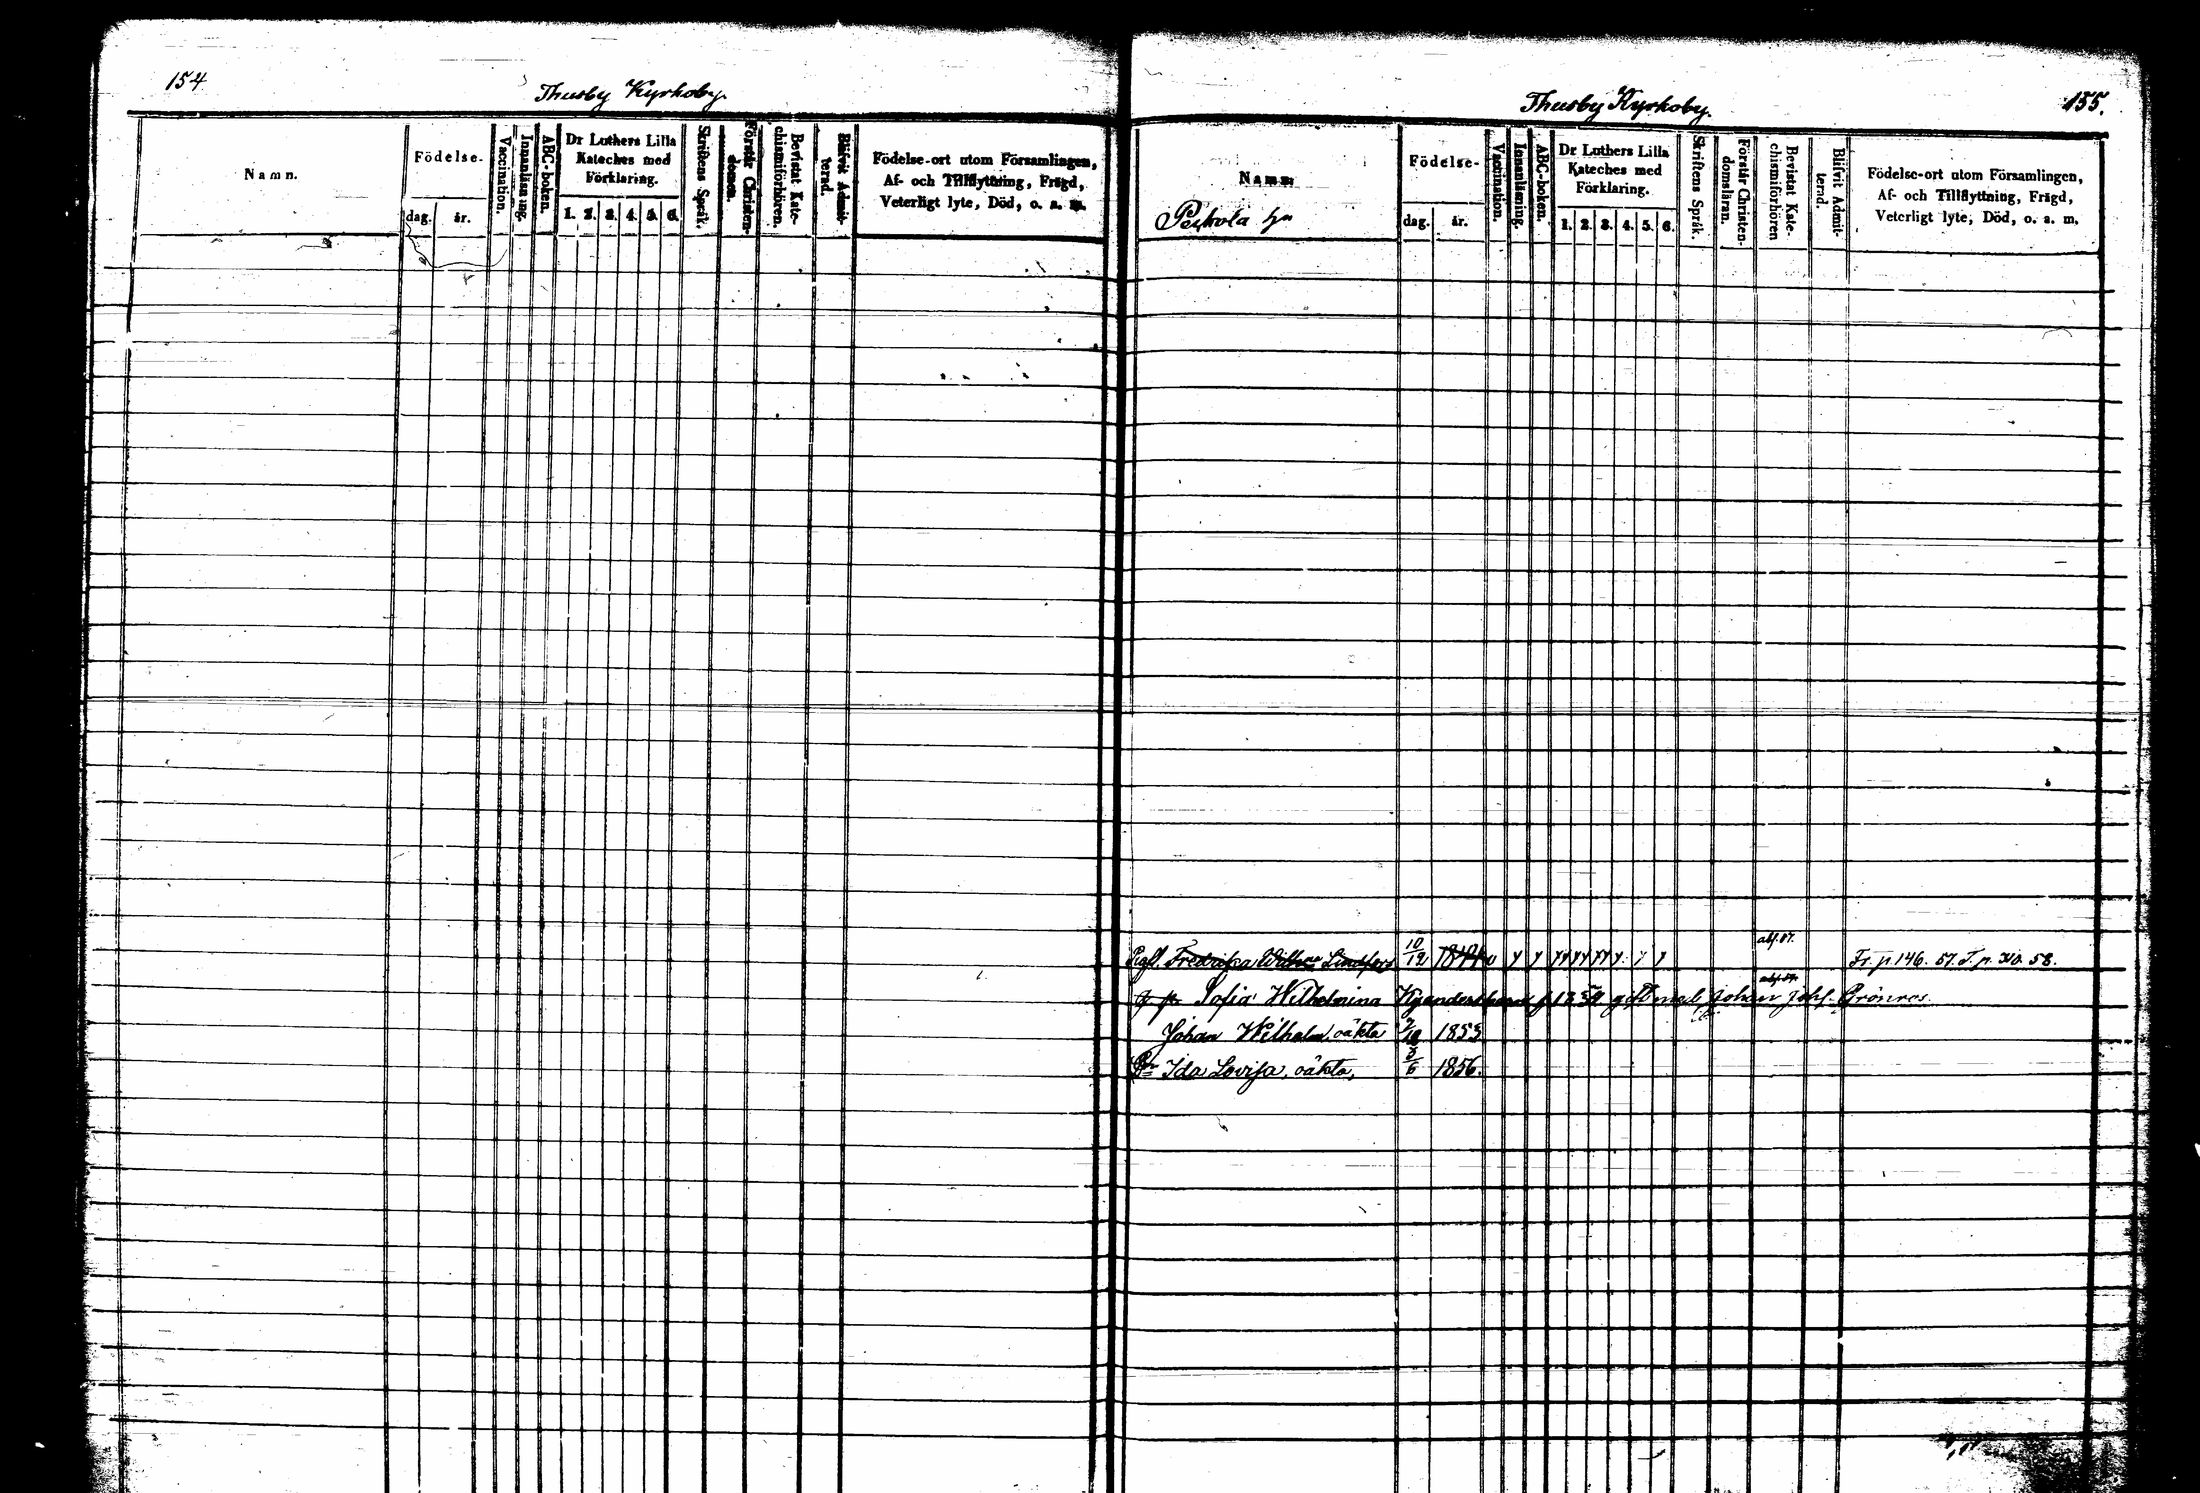 154
Thusby Kyrkoby.
Namn.
Födelse-
dag. år.
Vaccination.
Innanläsning.
ABC-boken.
Dr Luthers Lilla
Kateches med
Förklaring.
1. 2. 3. 4. 5. 6.
Skriftens Språk.
Förstår Christen-
domen.
Bevistat Kate-
chismiförhören.
Blifvit Admit-
terad.
Födelse-ort utom Församlingen,
Af- och Tillflyttning, Frägd,
Veterligt lyte, Död, o. a. m.
Thusby Kyrkoby.
155.
Namn.
Födelse-
dag. år.
Vaccination.
Innanläsning.
ABC-boken.
Dr Luthers Lilla
Kateches med
Förklaring.
1. 2. 3. 4. 5. 6.
Skriftens Språk.
Förstår Christen-
domsläran.
Bevistat Kate-
chismiförhören
Blifvit Admit-
terad.
Födelse-ort utom Församlingen,
Af- och Tillflyttning, Frägd,
Veterligt lyte, Död, o. a. m.
abs. 57.
Fredrika Lindfors 10/12 Fr. p. 146. 57. T. p. 58.
Sofia Wilhelmina gift med Johan Joh. Grönroos
Johan Wilhelm, oäkta 1853
Ida Lovisa, oäkta, 3/6 1856.